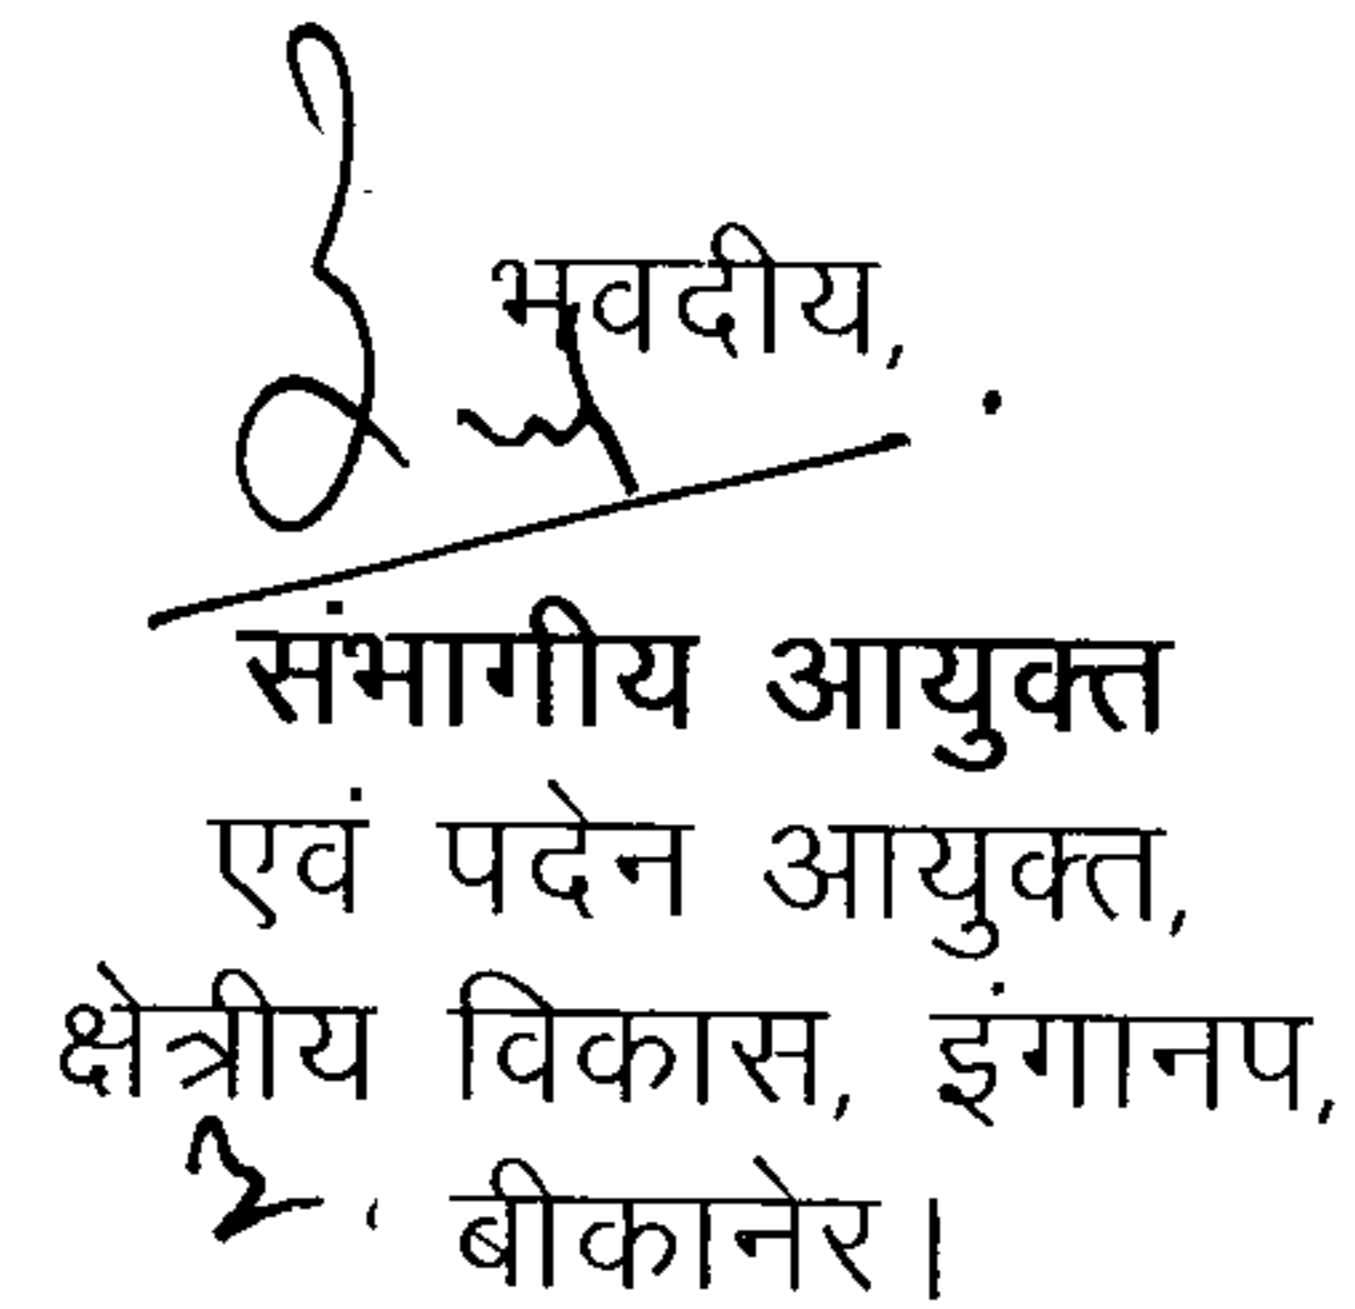 भवदीय,
संभागीय आयुक्त
एवं पदेन आयुक्त,
क्षेत्रीय विकास, इंगानप,
बीकानेर।